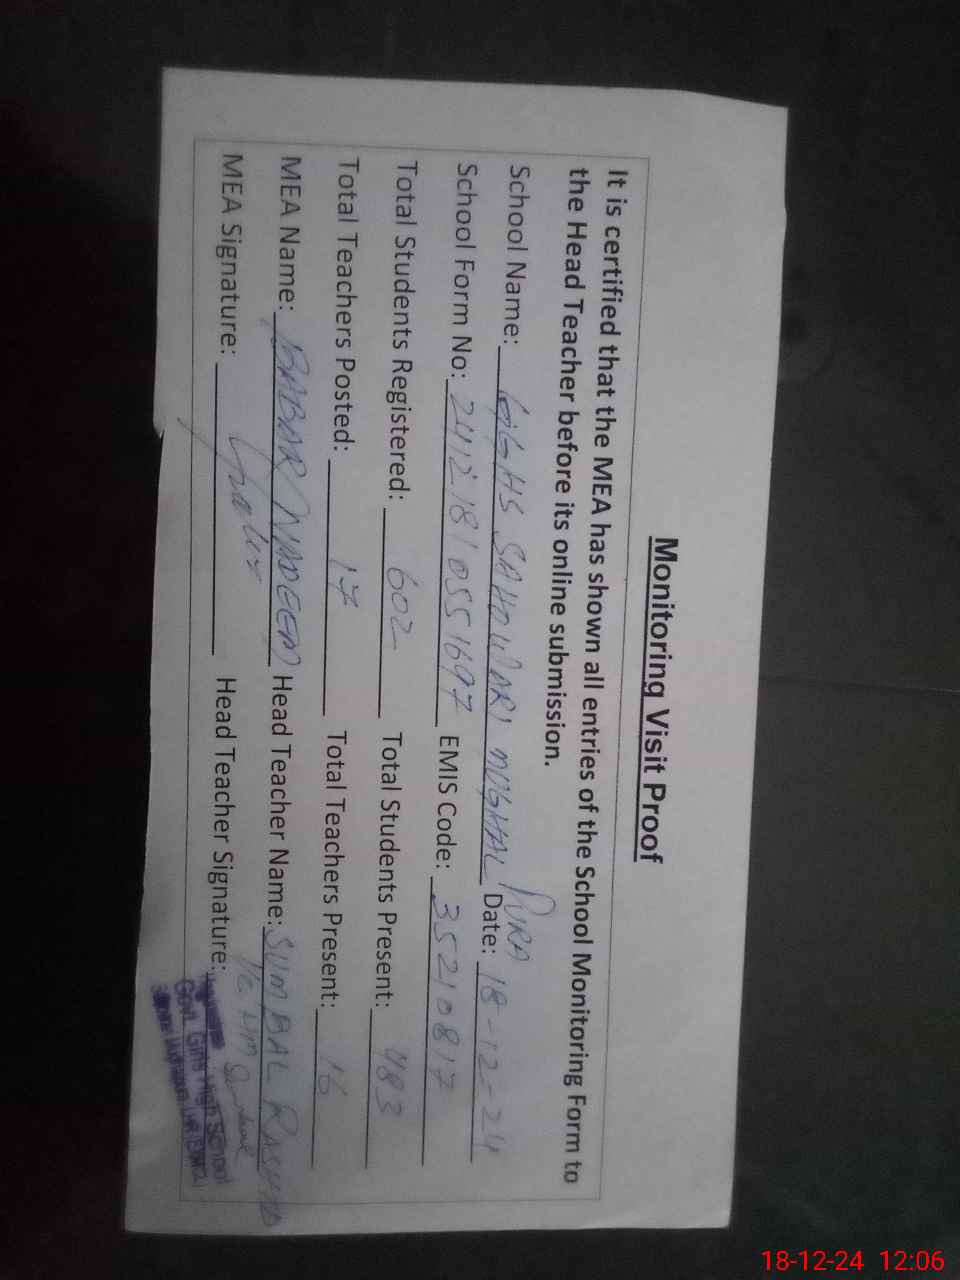 Monitoring Visit Proof
It is certified that the MEA has shown all entries of the School Monitoring Form to
the Head Teacher before its online submission.
School Name: GGHS SAHOWARI MUGHAL PURA Date: 18-12-24
School Form No: 24121810551697 EMIS Code: 35210817
Total Students Registered: 602 Total Students Present: 483
Total Teachers Posted: 17 Total Teachers Present: 16
MEA Name: BABAR NADEEM Head Teacher Name: SUMBAL RASHID
MEA Signature: Head Teacher Signature:
Govt. Girls High School
18-12-24 12:06